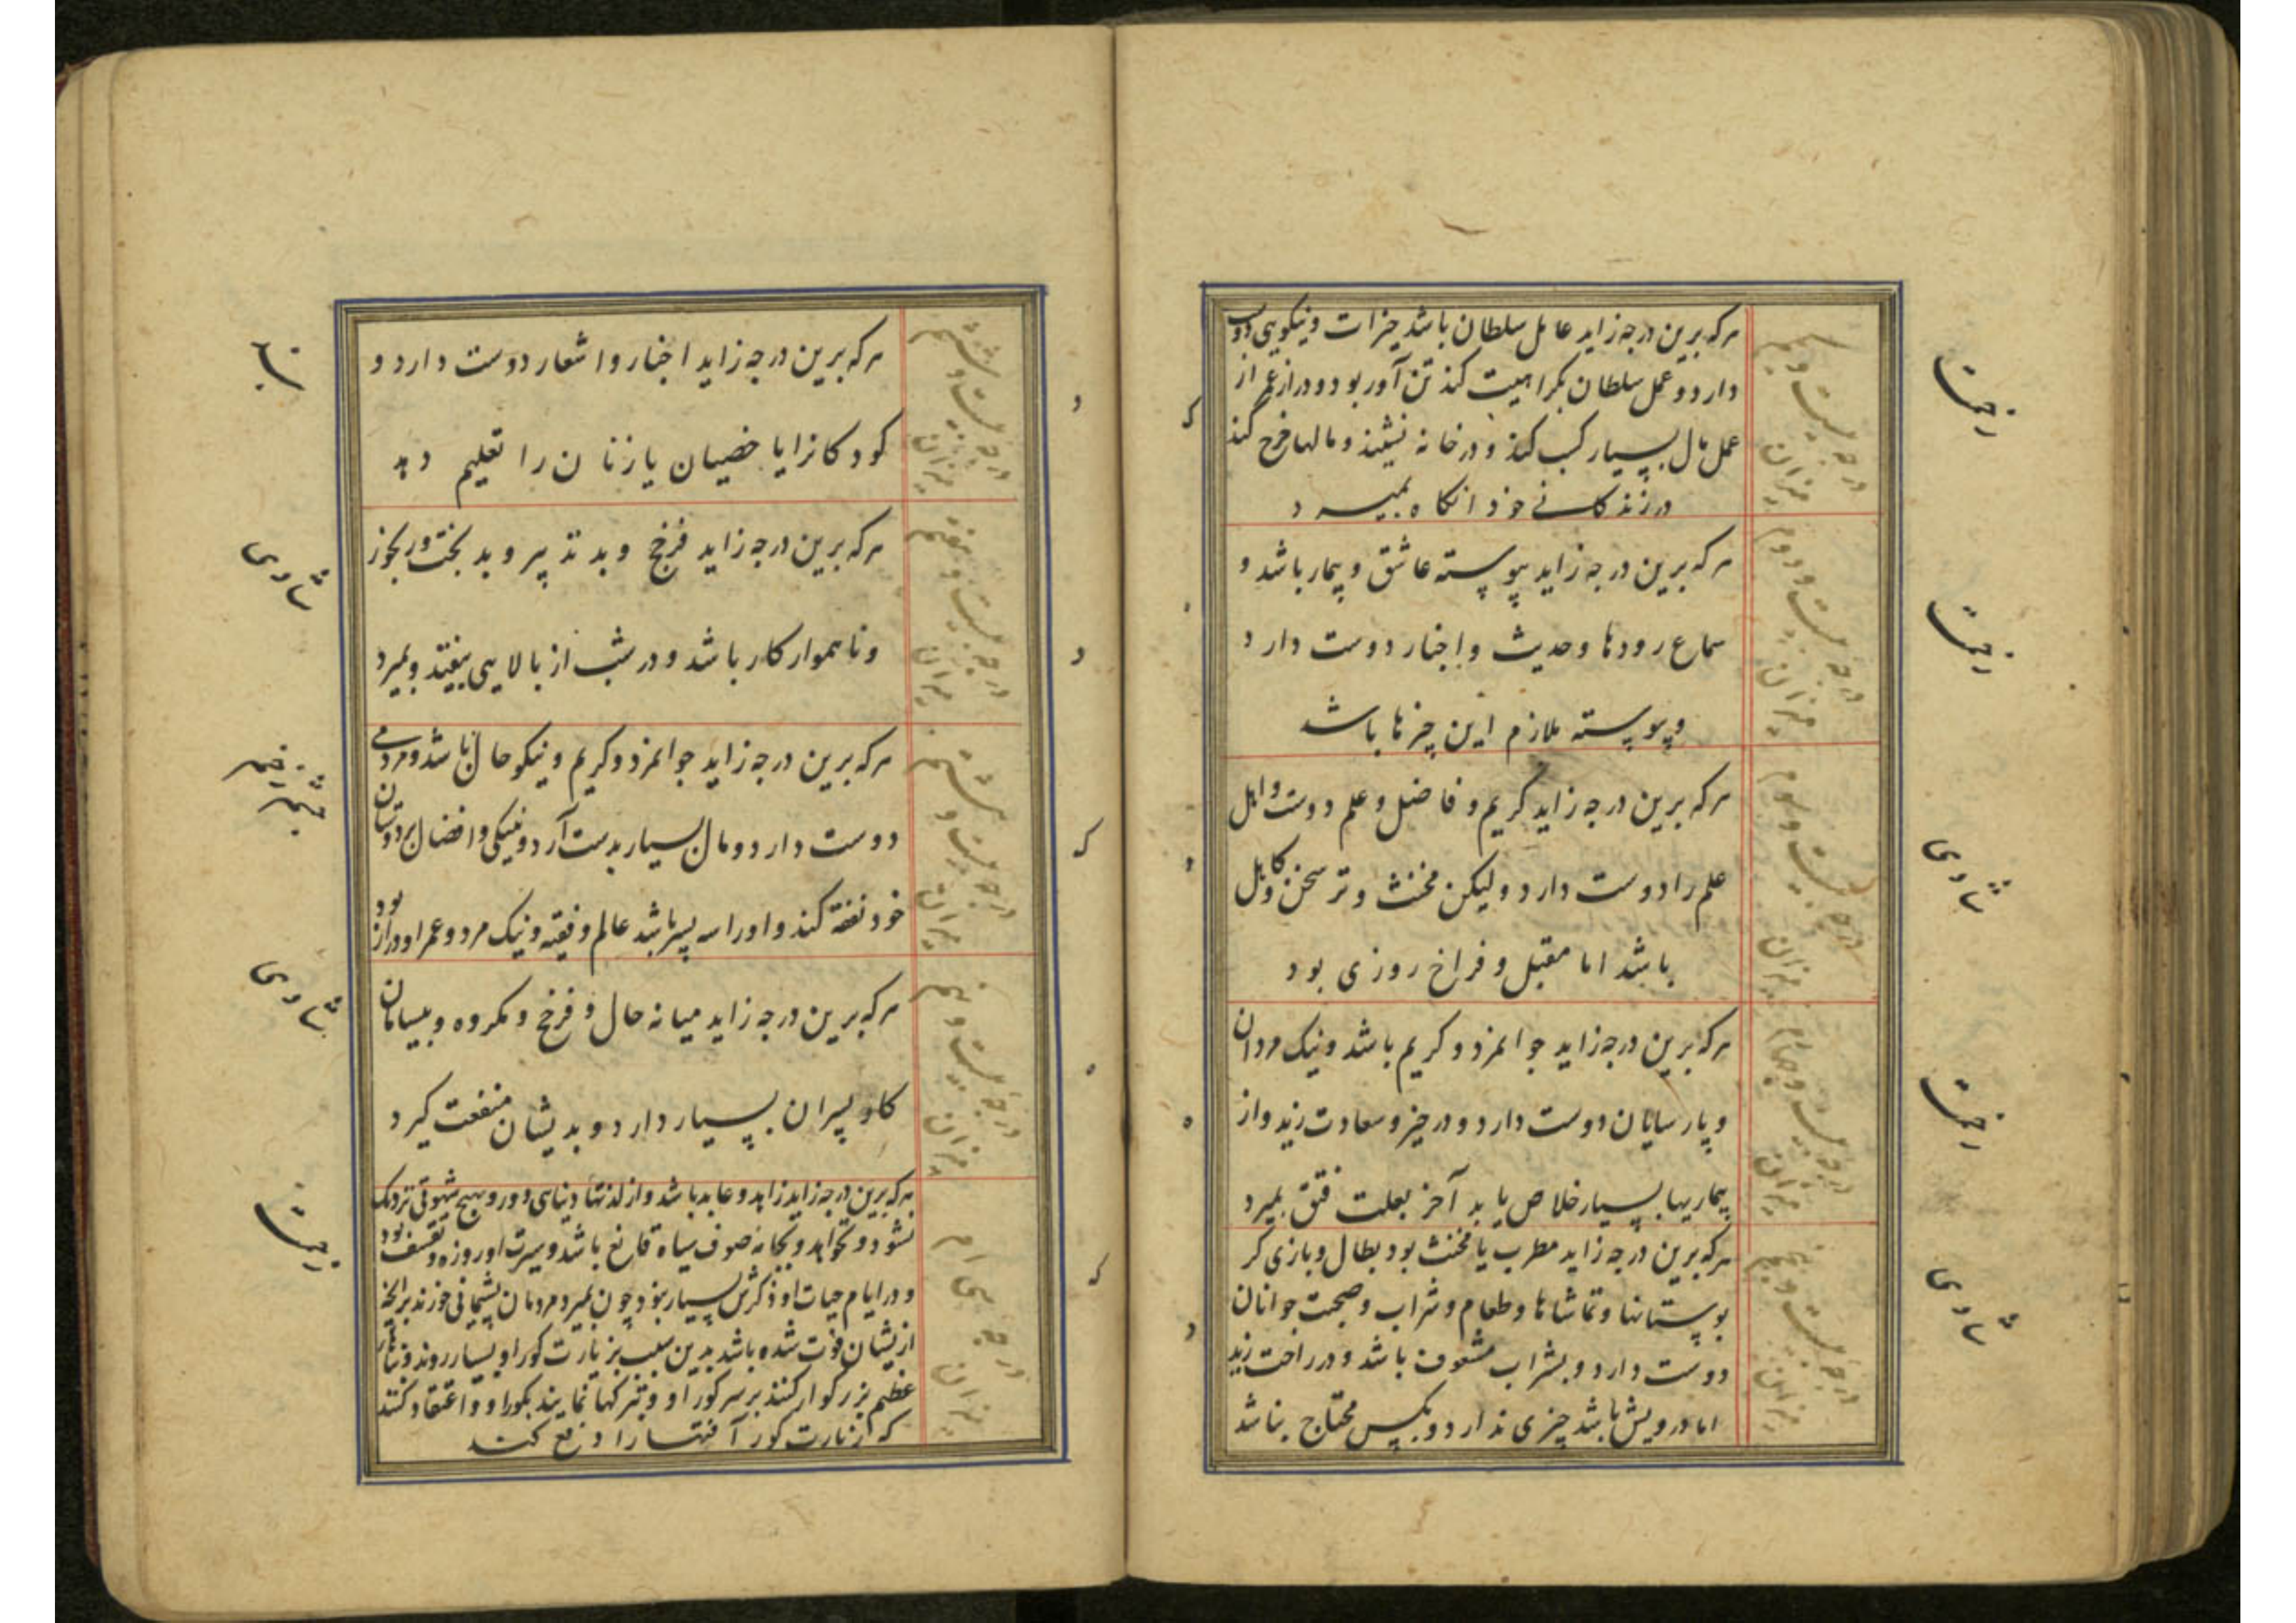 درجه بیست و یکم
میزان
هرکه برین درجه زاید عامل سلطان باشد خیرات و نیکویی دوست
دارد و عمل سلطان بکراهیت کند تن آور بود و دراز عمر از
عمل مال بسیار کسب کند و در خانه نشیند و مالها خرج کند
در زندکانی خود انکاه بمیرد
درجه بیست و دوم
میزان
هرکه برین درجه زاید پیوسته عاشق و بیمار باشد و
سماع رودها و حدیث و اخبار دوست دارد
و پیوسته ملازم این چیزها باشد
درجه بیست و سوم
میزان
هرکه برین درجه زاید کریم و فاضل و علم دوست و اهل
علم را دوست دارد ولیکن مخنث و تر سخن و کاهل
باشد اما مقبل و فراخ روزی بود
درجه بیست و چهارم
میزان
هرکه برین درجه زاید جوانمرد و کریم باشد و نیک مردان
و پارسایان دوست دارد و در خیر و سعادت زید و از
بیماریها بسیار خلاص یابد آخر بعلت فتق بمیرد
درجه بیست و پنجم
میزان
هرکه برین درجه زاید مطرب یا مخنث بود بطال و بازی کر
بوستانها و تماشاها و طعام و شراب و صحبت جوانان
دوست دارد و بشراب مشعوف باشد و در راحت زید
اما درویش باشد چیزی ندارد و بکس محتاج نباشد
درجه بیست و ششم
میزان
هرکه برین درجه زاید اخبار و اشعار دوست دارد و
کودکانرا یا خصیان یا زنان را تعلیم دهد
درجه بیست و هفتم
میزان
هرکه برین درجه زاید فرخج و بد تدبیر و بدبخت و رنجور
و ناهموار کار باشد و در شب از بالایی بیفتد و بمیرد
درجه بیست و هشتم
میزان
هرکه برین درجه زاید جوانمرد و کریم و نیکو حال باشد و مردمی
دوست دارد و مال بسیار بدست آرد و نیکی و افضال بر دوستان
خود نفقه کند و او را سه پسر باشد عالم و فقیه و نیک مرد و عمر او دراز بود
درجه بیست و نهم
میزان
هرکه برین درجه زاید میانه حال و فرخج و مکروه و بیسامان
کار و پسران بسیار دارد و بدیشان منفعت کیرد
درجه سی ام
میزان
هرکه برین درجه زاید زاهد و عابد باشد و از لذتهاء دنیای دور و بهیچ شهوتی نزدیک
نشود و نخواهد و بجامه صوف سیاه قانع باشد و سیرت او روزه و تقشف بود
و در ایام حیات او ذکرش بسیار بود چون بمیرد مردمان پشیمانی خورند برآنچه
ازیشان فوت شده باشد بدین سبب بزیارت کور او بسیار روند و بناء
عظیم بزرکوار کنند بر سر کور او و تبرکها نمایند بکور او و اعتقاد کنند
که زیارت کور آفتها را دفع کند